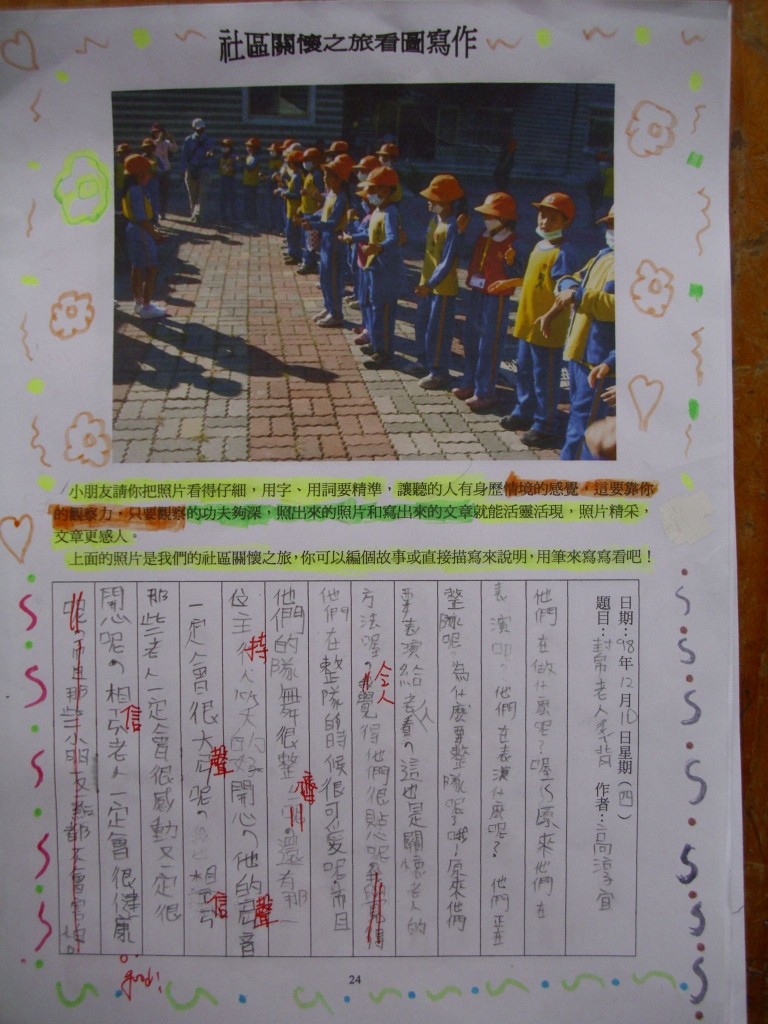 社區關懷之旅看圖寫作
小朋友請你把照片看得仔細，用字、用詞要精準，讓聽的人有身歷情境的感覺，這要靠你
的觀察力，只要觀察的功夫夠深，照出來的照片和寫出來的文章就能活靈活現，照片精采，
文章更感人。
上面的照片是我們的社區關懷之旅，你可以編個故事或直接描寫來說明，用筆來寫寫看吧！
日期：98年12月10日星期(四)
題目：幫老人搥背 作者：高淳宜
他們在做什麼呢？喔！原來他們在
表演呢。他們在表演什麼呢？他們正在
整隊呢。為什麼要整隊呢？哦！原來他們
要表演給老人看。這也是關懷老人的
方法喔。令人覺得他們很貼心呢。
他們在整隊的時候很可愛呢。而且
他們的隊舞很整齊。還有那一
位主持人笑的好開心。他的聲音
一定會很大聲呢。相信
那些老人一定會很感動又一定很
開心呢。相信老人一定會很健康。
呢。而且那些小朋友
good!
24